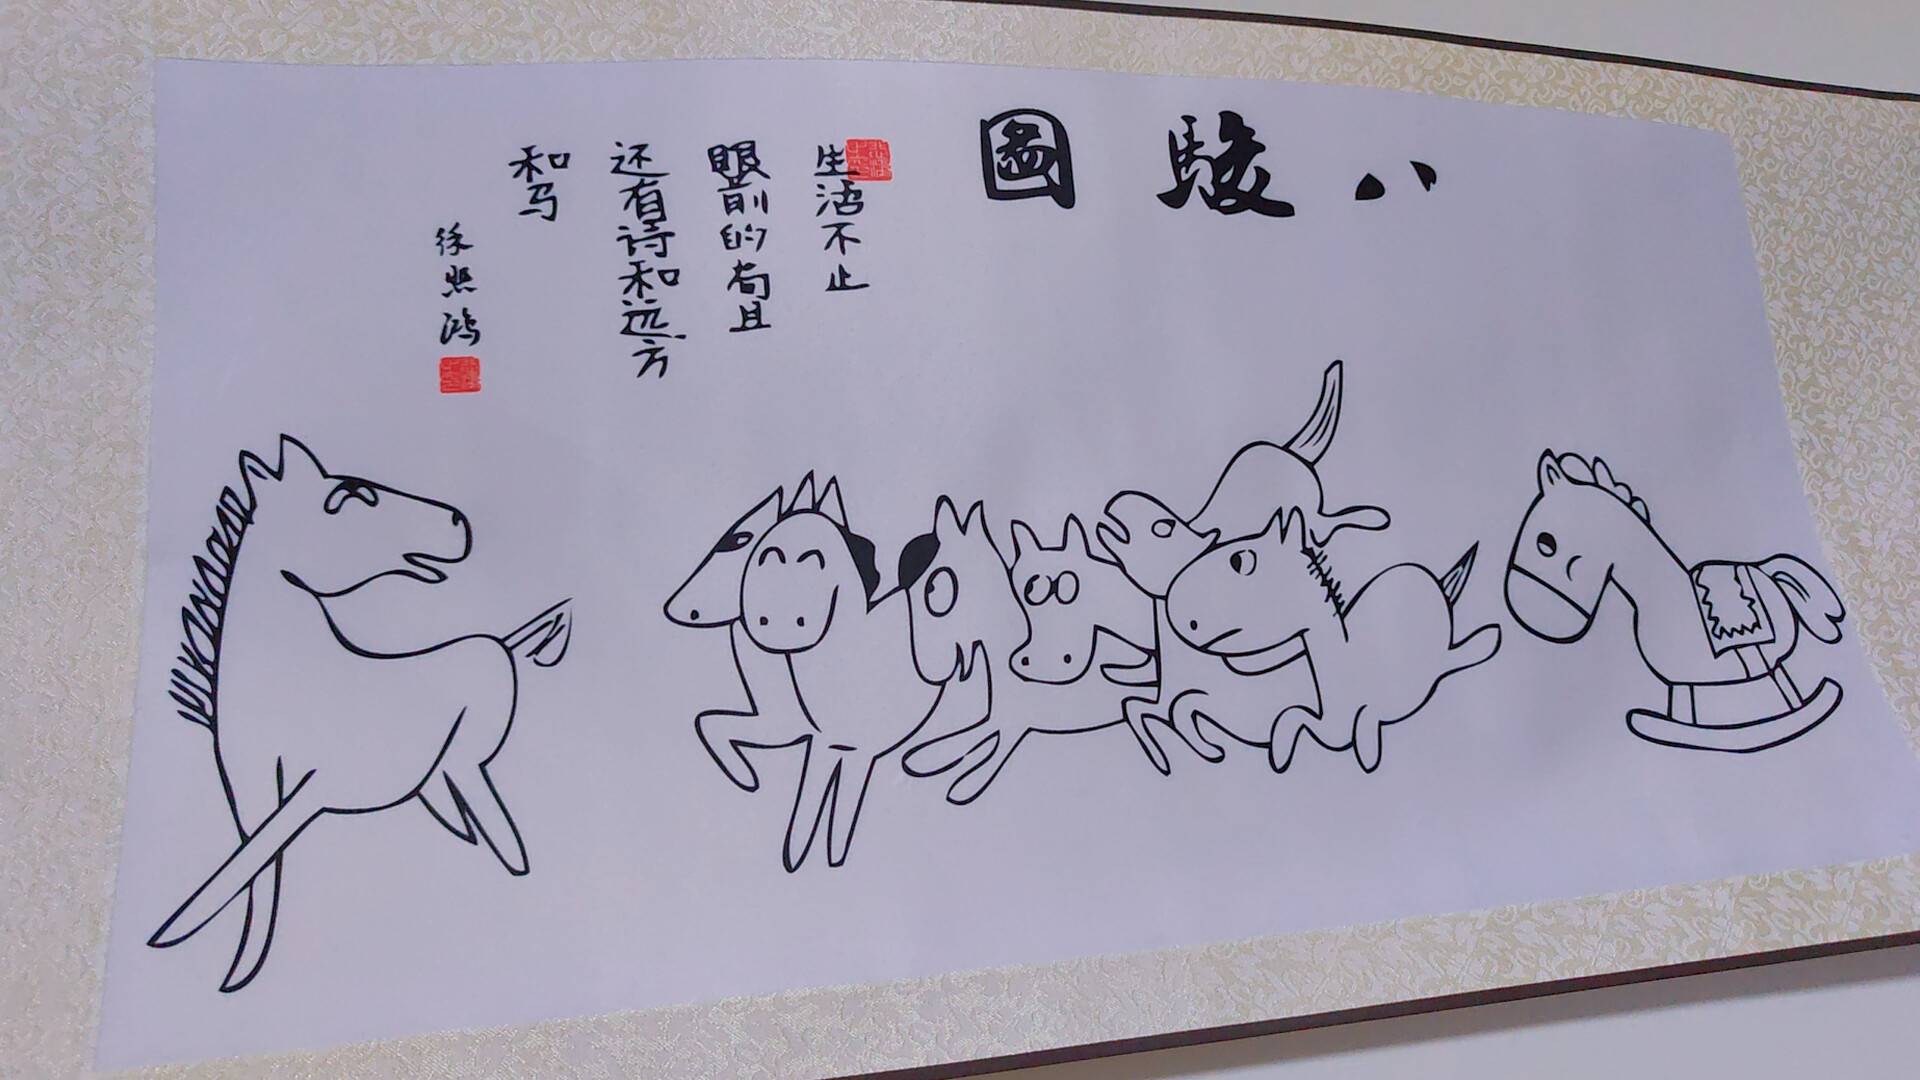 八駿圖
生活不止
眼前的苟且
还有诗和远方
和马
徐熙鸿